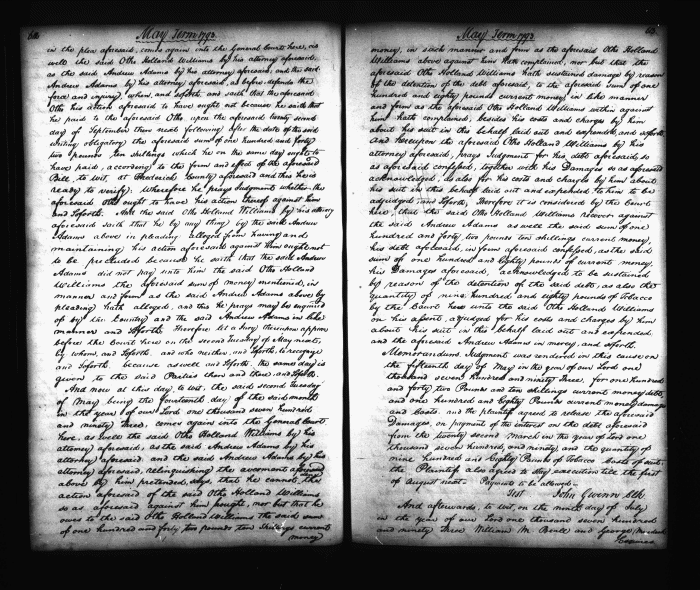 May Term 1793.
in the plea aforesaid, comes again into the General Court here, as
well the said Otho Holland Williams by his attorney aforesaid,
as the said Andrew Adams by his attorney aforesaid, and the said
Andrew Adams by his attorney aforesaid, as before, defends the
force and injury, when, and soforth, and saith that the aforesaid
Otho his action aforesaid to have ought not because he saith that
he paid to the aforesaid Otho upon the aforesaid twenty second
day of September then next following after the date of the said
writing obligatory the aforesaid sum of one hundred and forty
two pounds ten shillings which he on the same day ought to
have paid, according to the form and effect of the aforesaid
Bill, to wit, at Frederick County aforesaid and this he is
ready to verify; Wherefore he prays Judgment whether the
aforesaid Otho ought to have his action thereof against him
and soforth. And the said Otho Holland Williams by his attorney
aforesaid saith that he by any thing by the said Andrew
Adams above in pleading alleged from having and
maintaining his action aforesaid against him ought not
to be precluded because he saith that the said Andrew
Adams did not pay unto him the said Otho Holland
Williams the aforesaid sum of money mentioned, in
manner and form as the said Andrew Adams above by
pleading hath alleged, and this he prays may be enquired
of by the Country and the said Andrew Adams in like
manner and soforth. Therefore let a Jury thereupon appear
before the Court here on the second Tuesday of May next,
by whom, and soforth, and who neither, and soforth, to recognize
and soforth because as well and soforth, the same day is
given to the said Parties then and there and soforth.
And now at this day, to wit, the said second Tuesday
of May being the fourteenth day of the said month
in the year of our Lord one thousand seven hundred
and ninety three, comes again into the General Court
here, as well the said Otho Holland Williams by his
attorney aforesaid, as the said Andrew Adams by his
attorney aforesaid and the said Andrew Adams by his
attorney aforesaid, relinquishing the averment aforesaid
above by him pretended, says, that he cannot the
action aforesaid of the said Otho Holland Williams
so as aforesaid against him brought, nor but that he
owes to the said Otho Holland Williams the said sum
of one hundred and forty two pounds ten shillings current
money
May Term 1793.
money, in such manner and form as the aforesaid Otho Holland
Williams above against him hath complained, nor but that the
aforesaid Otho Holland Williams hath sustained damage by reason
of the detention of the debt aforesaid, to the aforesaid sum of one
hundred and eighty pounds current money in like manner
and form as the aforesaid Otho Holland Williams within against
him hath complained, besides his costs and charges by him
about his suit in this behalf laid out and expended, and soforth.
And hereupon the aforesaid Otho Holland Williams by his
attorney aforesaid, prays Judgment for his debt aforesaid, so
as aforesaid confessed, together with his Damages so as aforesaid
acknowledged, as also for his costs and charges by him about
his suit in this behalf laid out and expended to him to be
adjudged, and soforth, Therefore it is considered by the Court
here, that the said Otho Holland Williams recover against
the said Andrew Adams as well the said sum of one
hundred and forty two pounds ten shillings current money,
his debt aforesaid, in form aforesaid confessed, as the said
sum of one hundred and Eighty pounds of current money
his Damages aforesaid, acknowledged to be sustained
by reason of the detention of the said debt, as also the
quantity of nine hundred and eighty pounds of tobacco
by the Court here unto the said Otho Holland Williams
on his assent, adjudged for his costs and charges by him
about his suit in this behalf laid out and expended
and the aforesaid Andrew Adams in mercy, and soforth.
Memorandum. Judgment was rendered in this cause on
the fifteenth day of May in the year of our Lord one
thousand seven hundred and ninety three, for one hundred
and forty two Pounds and ten shillings current money debt,
and one hundred and Eighty Pounds current money damages
and Costs. and the plaintiff agreed to release the aforesaid
Damages, on payment of the interest on the debt aforesaid
from the twenty second March in the year of Lord one
thousand seven hundred and ninety, and the quantity of
nine hundred and Eighty Pounds of Tobacco Costs of suit.
the Plaintiff also agreed to stay execution till the first
of August next. Payments to be allowed.
Test John Gwinn Clk.
And afterwards, to wit, on the ninth day of July
in the year of our Lord one thousand seven hundred
and ninety three William M. Beall and George Murdock